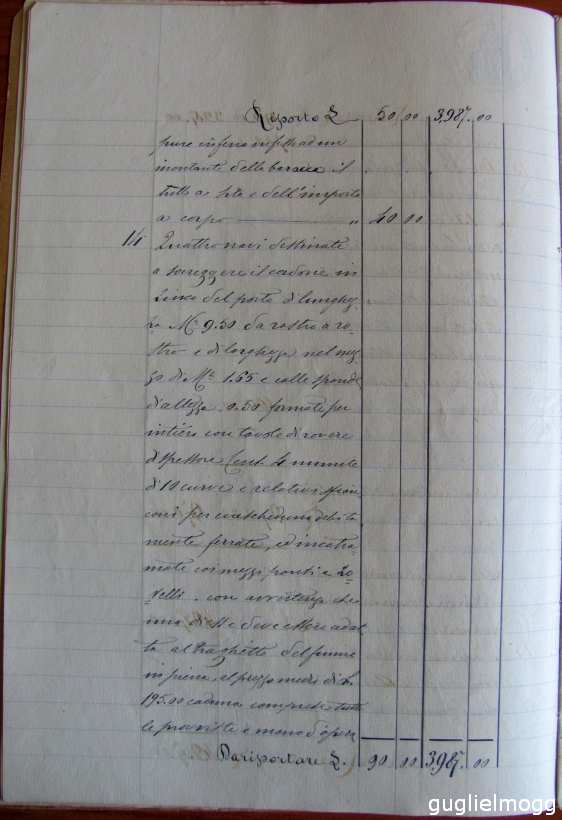 Riporto L. 50 00 3,987. 00
pure inferiori infisse ad un
montante della baracca il
tutto a sito e dell'importo
a corpo " 40 00
14 Quattro navi destinate
a sorreggere il cavdone in
Linea del porto di lunghez-
za Mi. 9.50 da rostro a ro-
stro e di larghezza nel mez-
zo di Mi. 1.65 e colle sponde
d'altezza 0.50 formate per
intiero con tavole di rovere
di spessore Cent. 4 munite
di 10 curve e relativi
per ciascheduna debita
mente ferrate, ed incatra-
mate coi mezzi ponti e Zo-
velli. con avvertenza che
una di esse deve essere adat
ta al traghetto del fiume
in piena, al prezzo medio di L.
195.00 caduna comprese tutte
le provviste e mano d'opera
Da riportare L. 90. 00 3,987. 00
guglielmogg